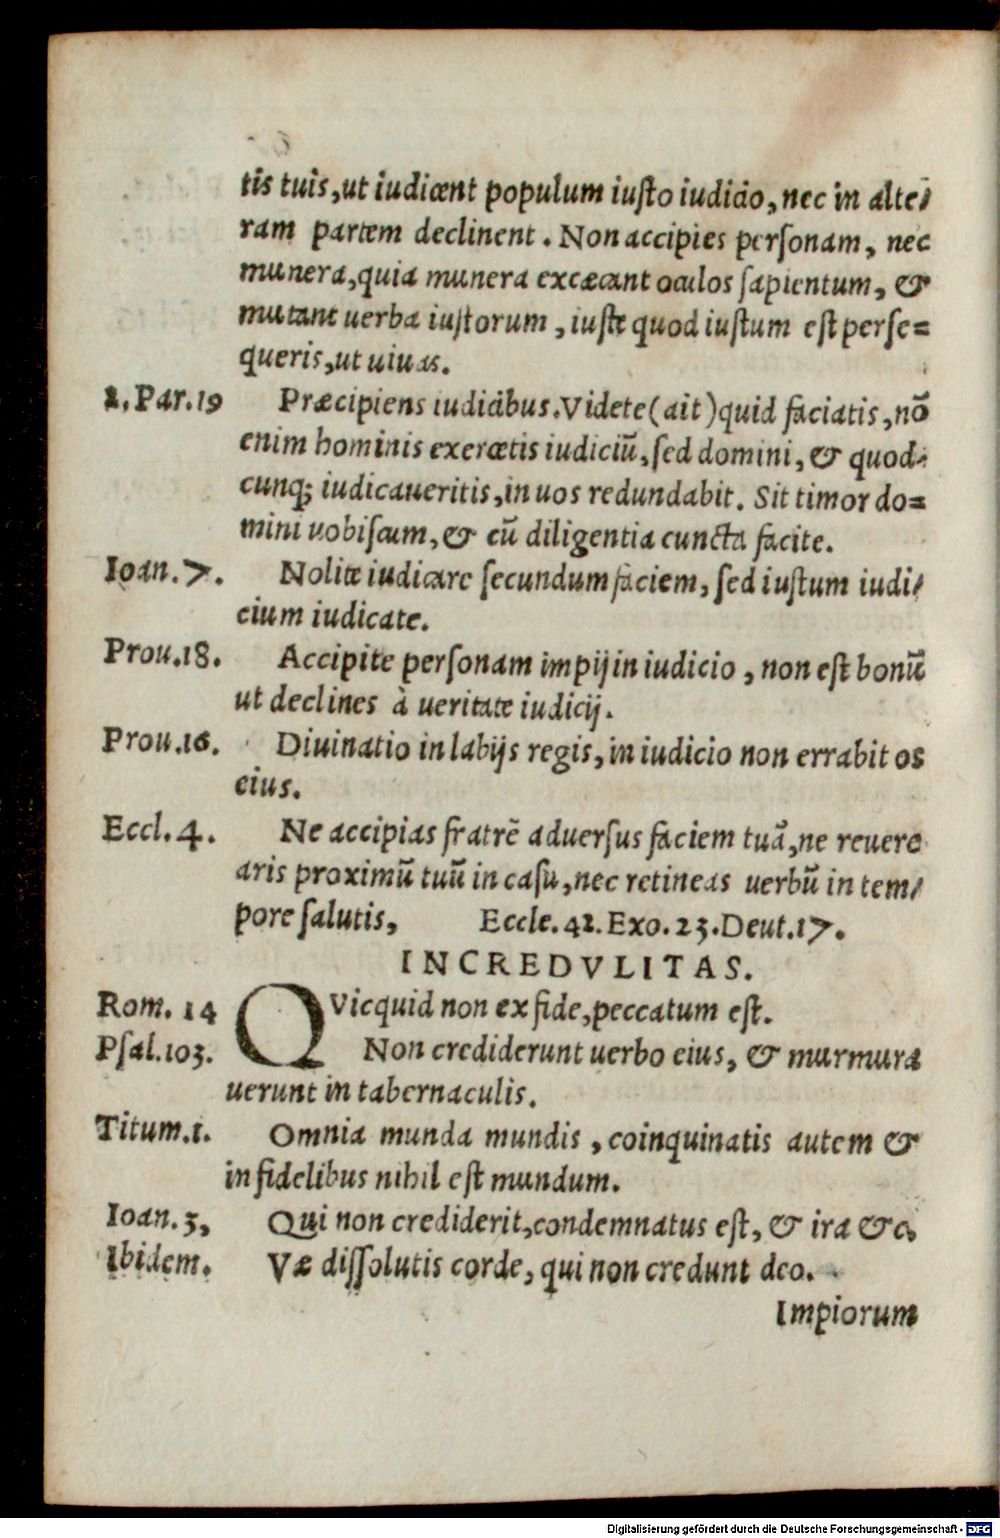 tis tuis, ut iudicent populum iusto iudicio, nec in alte/
ram partem declinent. Non accipies personam, nec
munera, quia munera excæcant oculos sapientum, &
mutant uerba iustorum, iuste quod iustum est perse=
queris, ut uiuas.
2. Par. 19 Præcipiens iudicibus. Videte (ait) quid faciatis, nō
enim hominis exercetis iudiciū, sed domini, & quod=
cunq; iudicaueritis, in uos redundabit. Sit timor do=
mini uobiscum, & cū diligentia cuncta facite.
Ioan. 7. Nolite iudicare secundum faciem, sed iustum iudi/
cium iudicate.
Prou. 18. Accipite personam impij in iudicio, non est bonū
ut declines à ueritate iudicij.
Prou. 16. Diuinatio in labijs regis, in iudicio non errabit os
eius.
Eccl. 4. Ne accipias fratrē aduersus faciem tuā, ne reuere
aris proximū tuū in casu, nec retineas uerbū in tem/
pore salutis, Eccle. 42. Exo. 23. Deut. 17.
INCREDVLITAS.
Rom. 14 QVicquid non ex fide, peccatum est.
Psal. 103. Non crediderunt uerbo eius, & murmura
uerunt in tabernaculis.
Titum. 1. Omnia munda mundis, coinquinatis autem &
in fidelibus nihil est mundum.
Ioan. 3, Qui non crediderit, condemnatus est, & ira &c.
Ibidem. Væ dissolutis corde, qui non credunt deo.
Impiorum
Digitalisierung gefördert durch die Deutsche Forschungsgemeinschaft - DFG